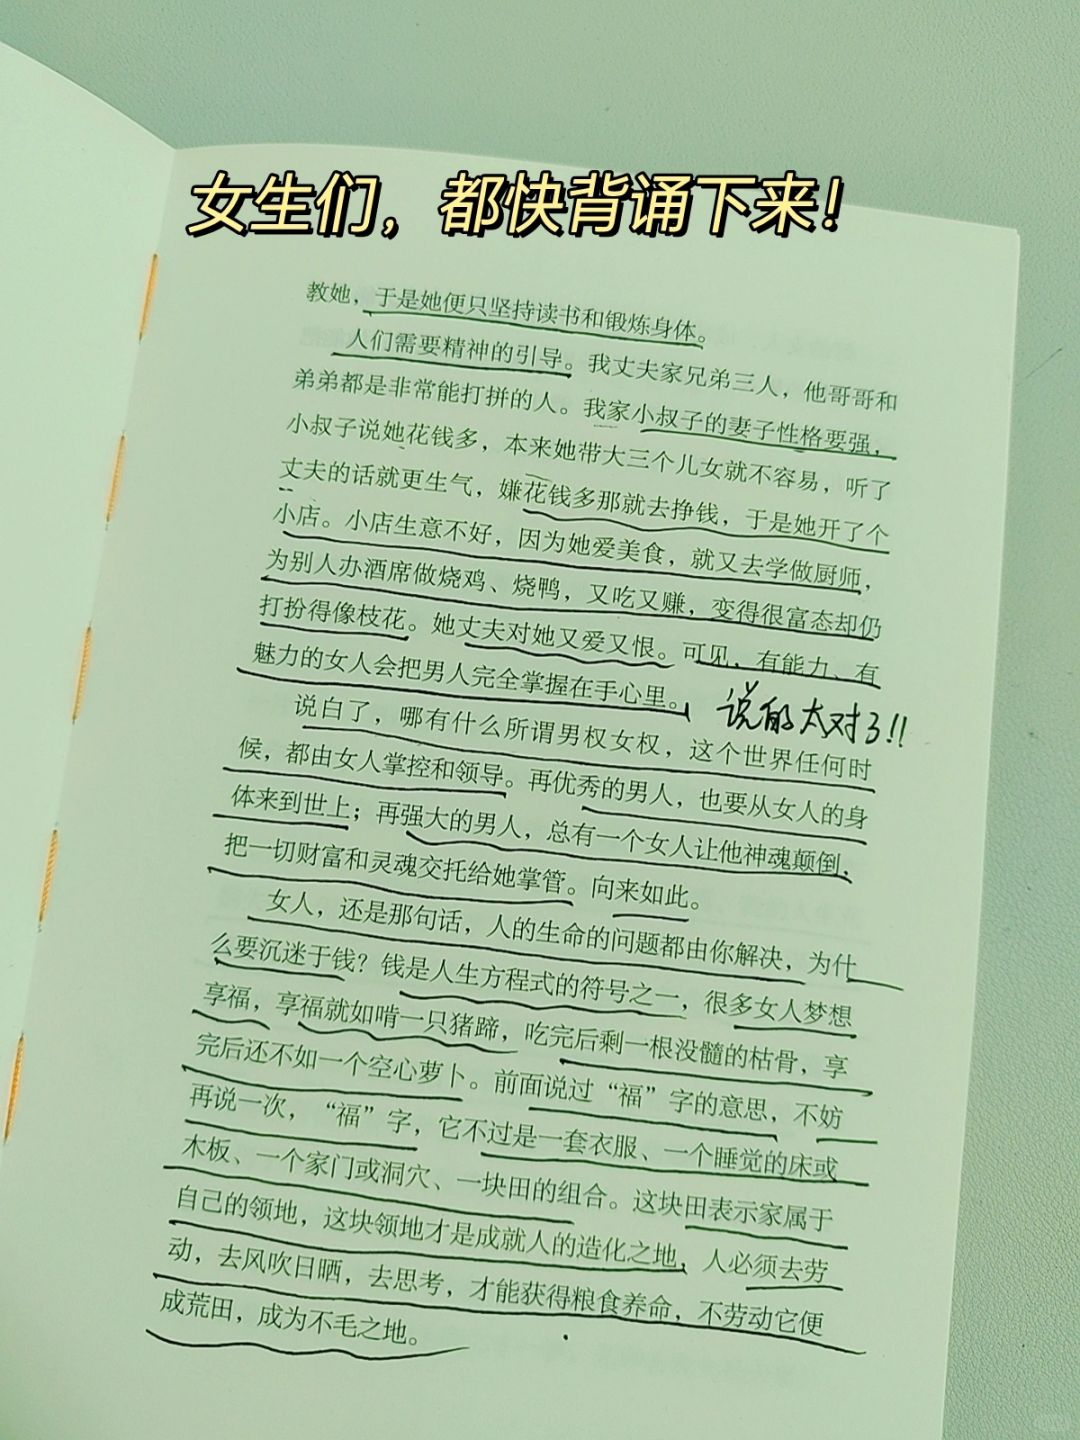 女生们，都快背诵下来！
教她，于是她便只坚持读书和锻炼身体。
人们需要精神的引导。我丈夫家兄弟三人，他哥哥和
弟弟都是非常能打拼的人。我家小叔子的妻子性格要强，
小叔子说她花钱多，本来她带大三个儿女就不容易，听了
丈夫的话就更生气，嫌花钱多那就去挣钱，于是她开了个
小店。小店生意不好，因为她爱美食，就又去学做厨师，
为别人办酒席做烧鸡、烧鸭，又吃又赚，变得很富态却仍
打扮得像枝花。她丈夫对她又爱又恨。可见，有能力、有
魅力的女人会把男人完全掌握在手心里。
说的太对了!!
说白了，哪有什么所谓男权女权，这个世界任何时
候，都由女人掌控和领导。再优秀的男人，也要从女人的身
体来到世上；再强大的男人，总有一个女人让他神魂颠倒，
把一切财富和灵魂交托给她掌管。向来如此。
女人，还是那句话，人的生命的问题都由你解决，为什
么要沉迷于钱？钱是人生方程式的符号之一，很多女人梦想
享福，享福就如啃一只猪蹄，吃完后剩一根没髓的枯骨，享
完后还不如一个空心萝卜。前面说过“福”字的意思，不妨
再说一次，“福”字，它不过是一套衣服、一个睡觉的床或
木板、一个家门或洞穴、一块田的组合。这块田表示家属于
自己的领地，这块领地才是成就人的造化之地，人必须去劳
动，去风吹日晒，去思考，才能获得粮食养命，不劳动它便
成荒田，成为不毛之地。